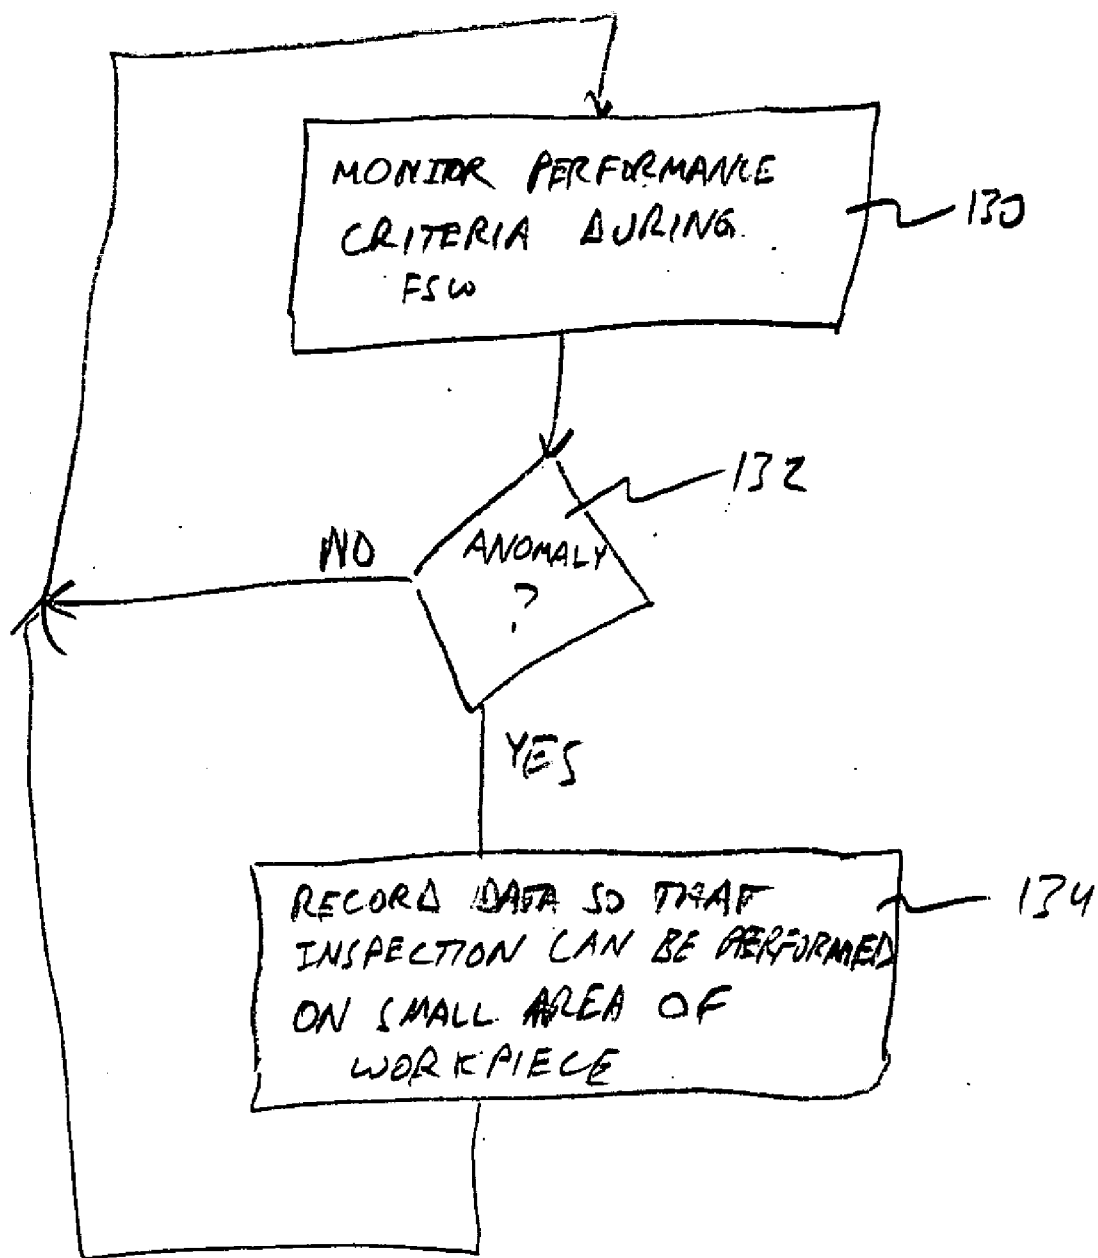 MONITOR PERFORMANCE
CRITERIA DURING
FSW
130
132
ANOMALY
?
NO
YES
RECORD DATA SO THAT
INSPECTION CAN BE PERFORMED
ON SMALL AREA OF
WORKPIECE
134